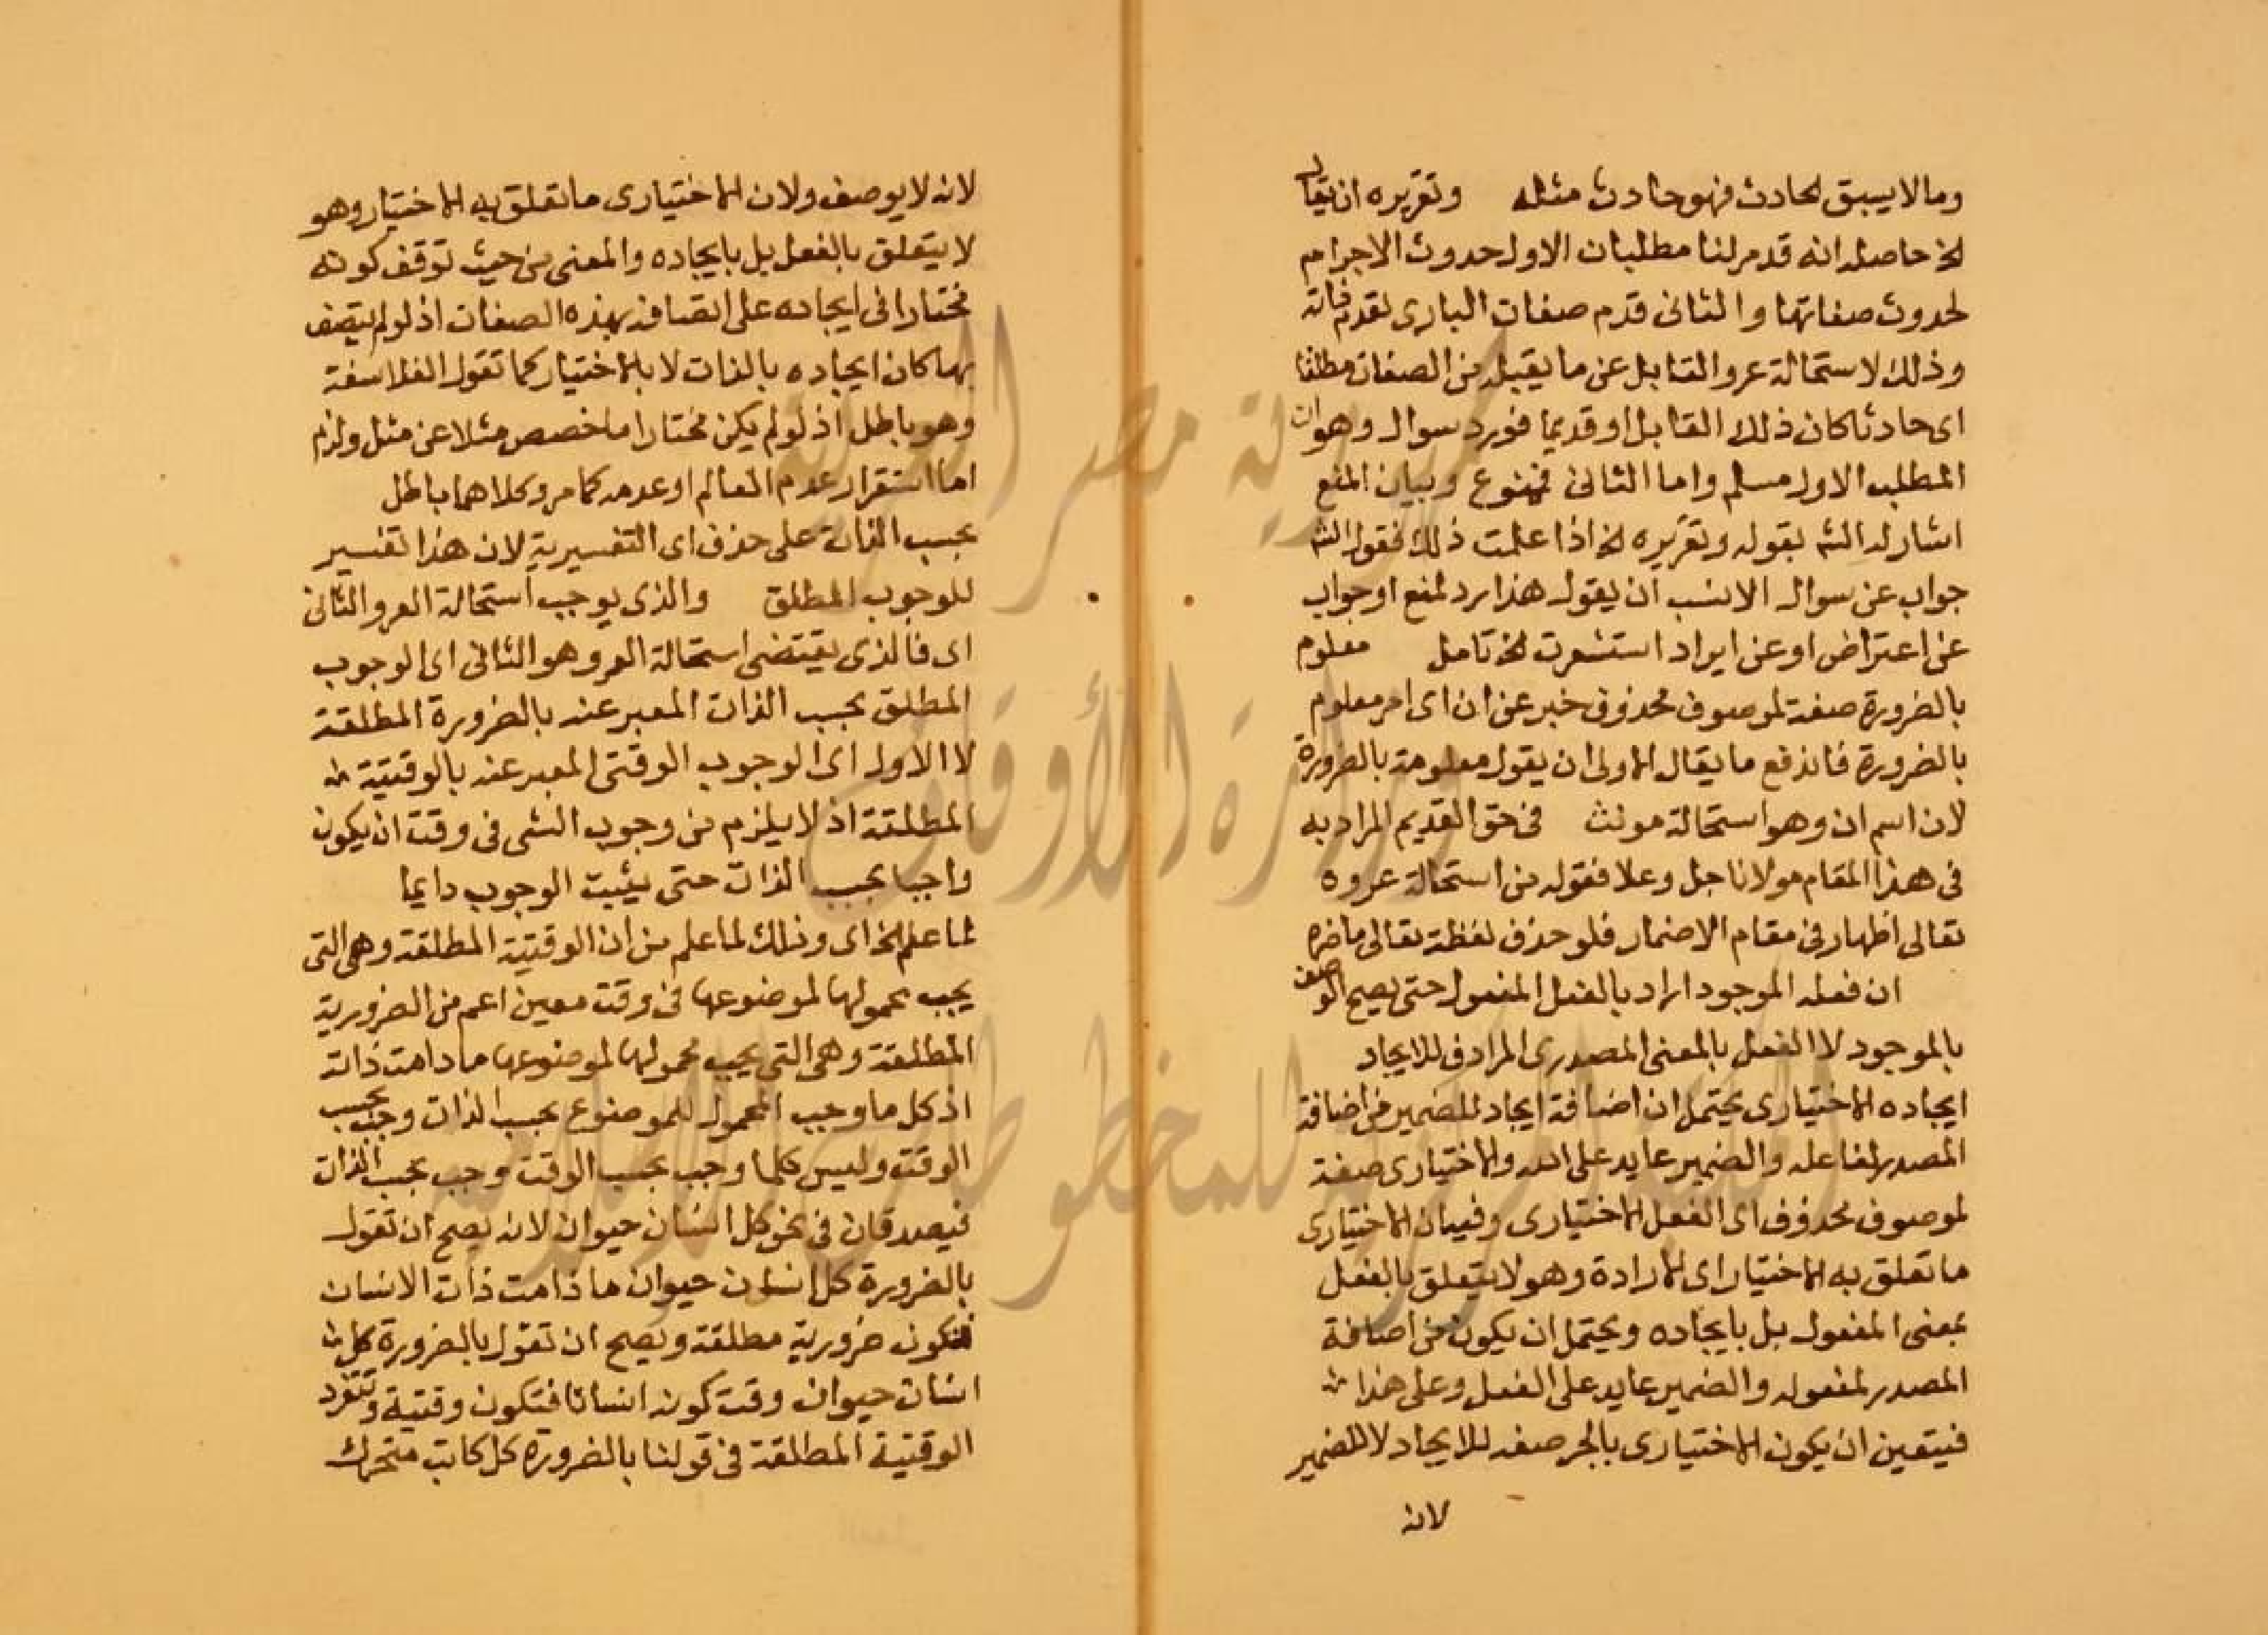 وما لا يسبق الحادث فهو حادث مثله وتقريره ان يقال
الخ حاصله انه قد مر لنا مطلبان الاول حدوث الاجرام
لحدوث صفاتها والثانى قدم صفات البارى لقدم ذاته
وذلك لاستحالة عرو القابل عن ما يقبل من الصفات مطلقا
اى حادثا كان ذلك القابل او قديما فورد سوال وهو ان
المطلب الاول مسلم واما الثانى فممنوع وبيان المنع
اشار له الش بقوله وتقريره الخ اذا علمت ذلك فقول الش
جواب عن سوال الانسب ان يقول هذا رد لمنع او جواب
عن اعتراض او عن ايراد استشعرت الخ تامل معلوم
بالضرورة صفة لموصوف محذوف خبر عن ان اى امر معلوم
بالضرورة فاندفع ما يقال الاولى ان يقول معلومة بالضرورة
لان اسم ان وهو استحالة مونث فى حق القديم المراد به
فى هذا المقام مولانا جل وعلا فقوله من استحالة عروه
تعالى اظهار فى مقام الاضمار فلو حذف لفظة تعالى ما ضره
ان فعله الموجود اراد بالفعل المفعول حتى يصح الوصف
بالموجود لا الفعل بالمعنى المصدرى المرادف للايجاد
ايجاده الاختيارى يحتمل ان اضافة ايجاد للضمير من اضافة
المصدر لفاعله والضمير عايد على الله والاختيارى صفة
لموصوف محذوف اى الفعل الاختيارى وفيه ان الاختيارى
ما تعلق به الاختيار اى الارادة وهو لا يتعلق بالفعل
بمعنى المفعول بل بايجاده ويحتمل ان يكون من اضافة
المصدر لمفعوله والضمير عايد على الفعل وعلى هذا
فيتعين ان يكون الاختيارى بالجر صفة للايجاد لا للضمير
لانه
لانه لا يوصف ولان الاختيارى ما تعلق به الاختيار وهو
لا يتعلق بالفعل بل بايجاده والمعنى من حيث توقف كونه
مختارا فى ايجاده على اتصافه بهذه الصفات اذ لو لم يتصف
بها كان ايجاده بالذات لا بالاختيار كما تقول الفلاسفة
وهو باطل اذ لو لم يكن مختارا ما خصص مثلا عن مثل ولزم
اما استقرار عدم العالم او عدمه كما مر وكلاهما باطل
بحسب الذات على حذف اى التفسيرية لان هذا تفسير
للوجوب المطلق والذى يوجب استحالة العرو الثانى
اى فالذى يقتضى استحالة العرو هو الثانى اى الوجوب
المطلق بحسب الذات المعبر عنه بالضرورة المطلقة
لا الاول اى الوجوب الوقتى المعبر عنه بالوقتية
المطلقة اذ لا يلزم من وجوب الشى فى وقت ان يكون
واجبا بحسب الذات حتى يثبت الوجوب دايما
لما علم الخ اى وذلك لما علم من ان الوقتية المطلقة وهى التى
يجب محمولها لموضوعها فى وقت معين اعم من الضرورية
المطلقة وهى التى يجب محمولها لموضوعها ما دامت ذاته
اذ كل ما وجب المحمول للموضوع بحسب الذات وجب بحسب
الوقت وليس كلما وجب بحسب الوقت وجب بحسب الذات
فيصدقان فى نحو كل انسان حيوان لانه يصح ان تقول
بالضرورة كل انسان حيوان ما دامت ذات الانسان
فتكون ضرورية مطلقة ويصح ان تقول بالضرورة كل
انسان حيوان وقت كونه انسانا فتكون وقتية وتنفرد
الوقتية المطلقة فى قولنا بالضرورة كل كاتب متحرك
جمهورية مصر العربية
وزارة الأوقاف
المكتبة المركزية للمخطوطات الإسلامية